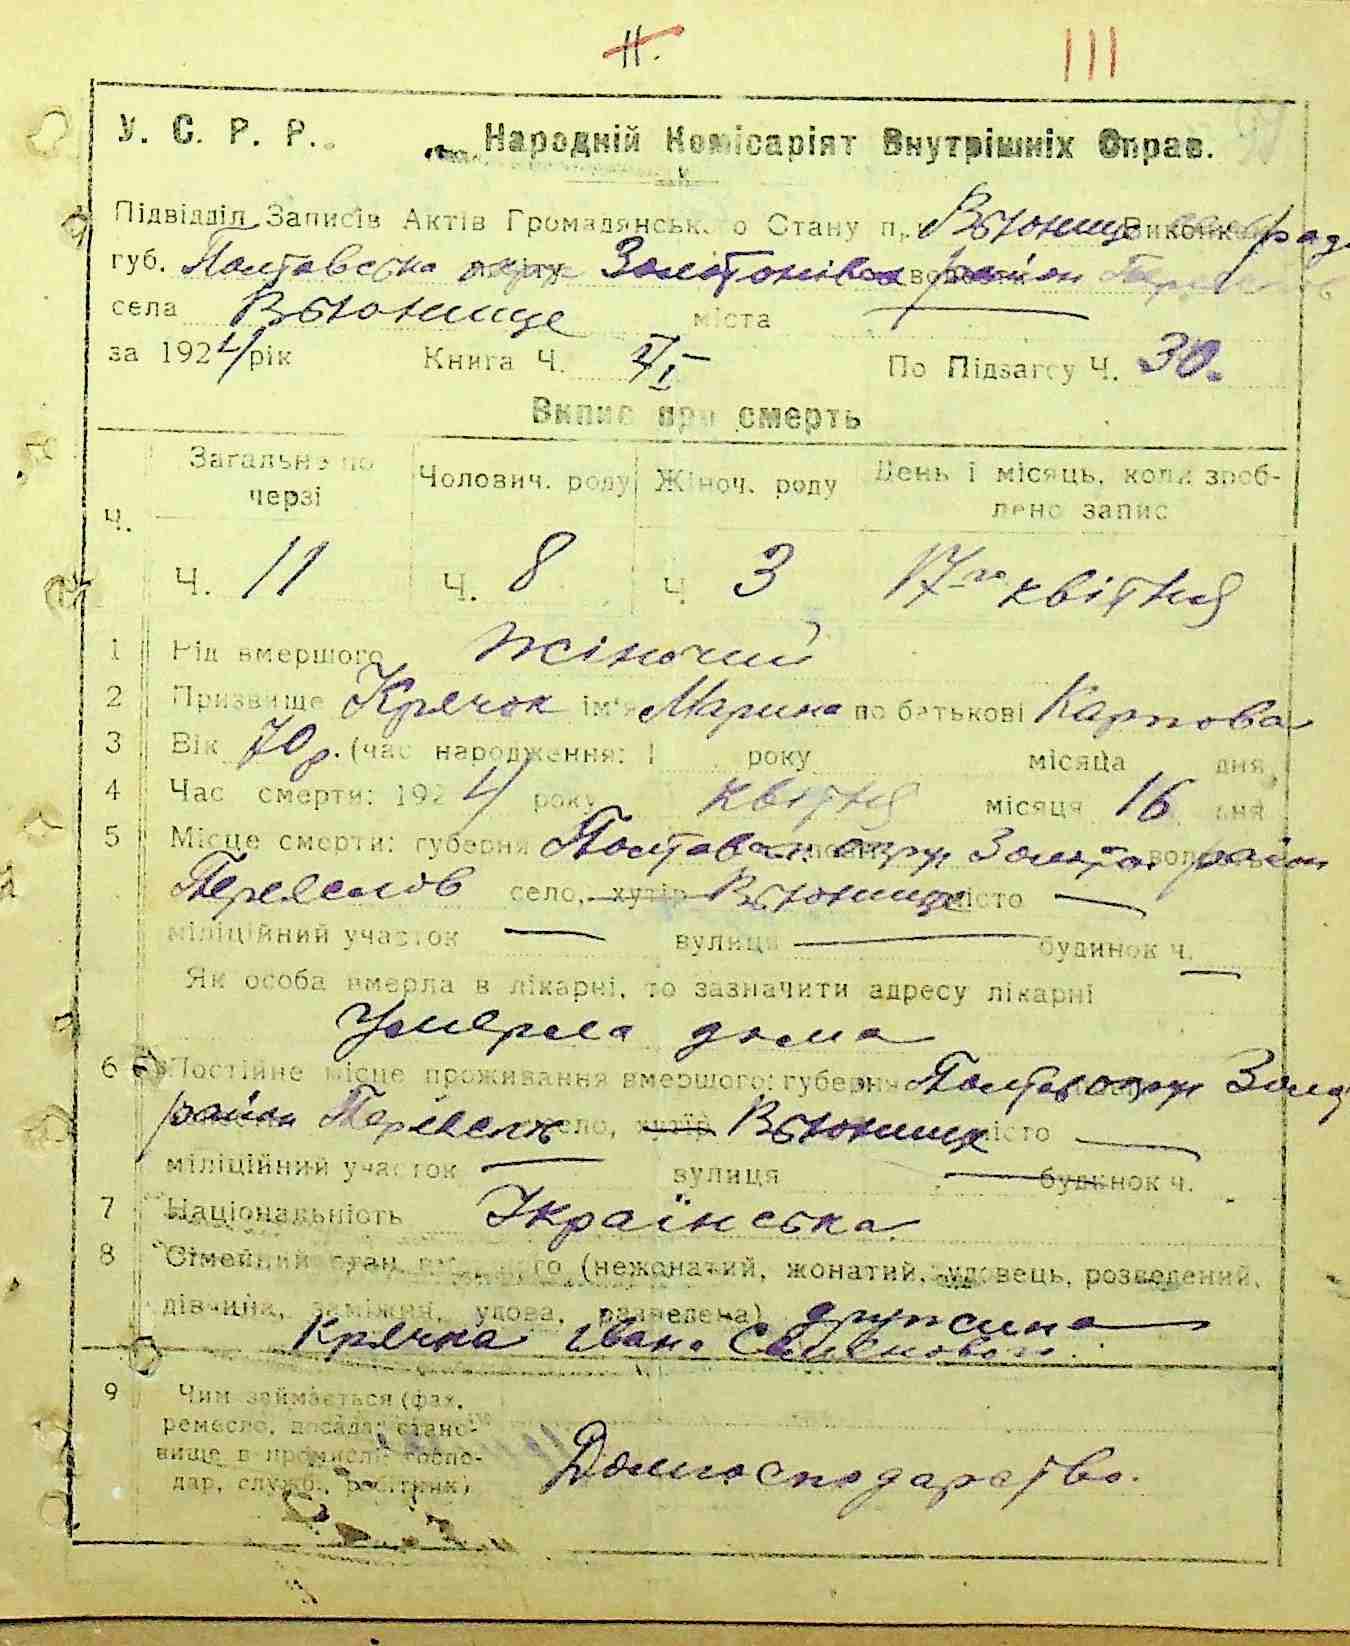 11.
111
У. С. Р. Р. Народній Комісаріят Внутрішніх Справ.
Підвідділ Записів Актів Громадянського Стану при Вьюнище Виконк ради
губ. Полтавська округ Золотонівська район
села Вьюнище міста —
за 1924 рік Книга Ч. По Підзагсу Ч. 30.
Випис про смерть
Ч. Загальне по черзі Чолович. роду Жіноч. роду День і місяць, коли зроблено запис
Ч. 11 Ч. 8 Ч 3 17го квітня
1 Рід вмершого Жіночий
2 Призвище Крячок ім'я Марина по батькові Карпова
3 Вік 70 р. (час народження: 1 року місяца дня
4 Час смерти: 1924 року квітня місяця 16 дня
5 Місце смерти: губерня Полтавськ округ Золотон район
Переяслов село, хутір Вьюнище місто —
міліційний участок — вулиця — будинок ч. —
Як особа вмерла в лікарні, то зазначити адресу лікарні
Умерла дома
6 Постійне місце проживання вмершого: губерня Полтав округ Золот
район село, хутір Вьюнище місто —
міліційний участок — вулиця — будинок ч.
7 Національність Українська
8 Сімейний стан (нежонатий, жонатий, удовець, розведений,
дівчина, заміжня, удова, разведена) дружина
Крячка Івана Семенового
9 Чим займається (фах,
ремесло, посада, стано-
вище в промислі госпо-
дар, служб., робітник)
Домгосподарство.